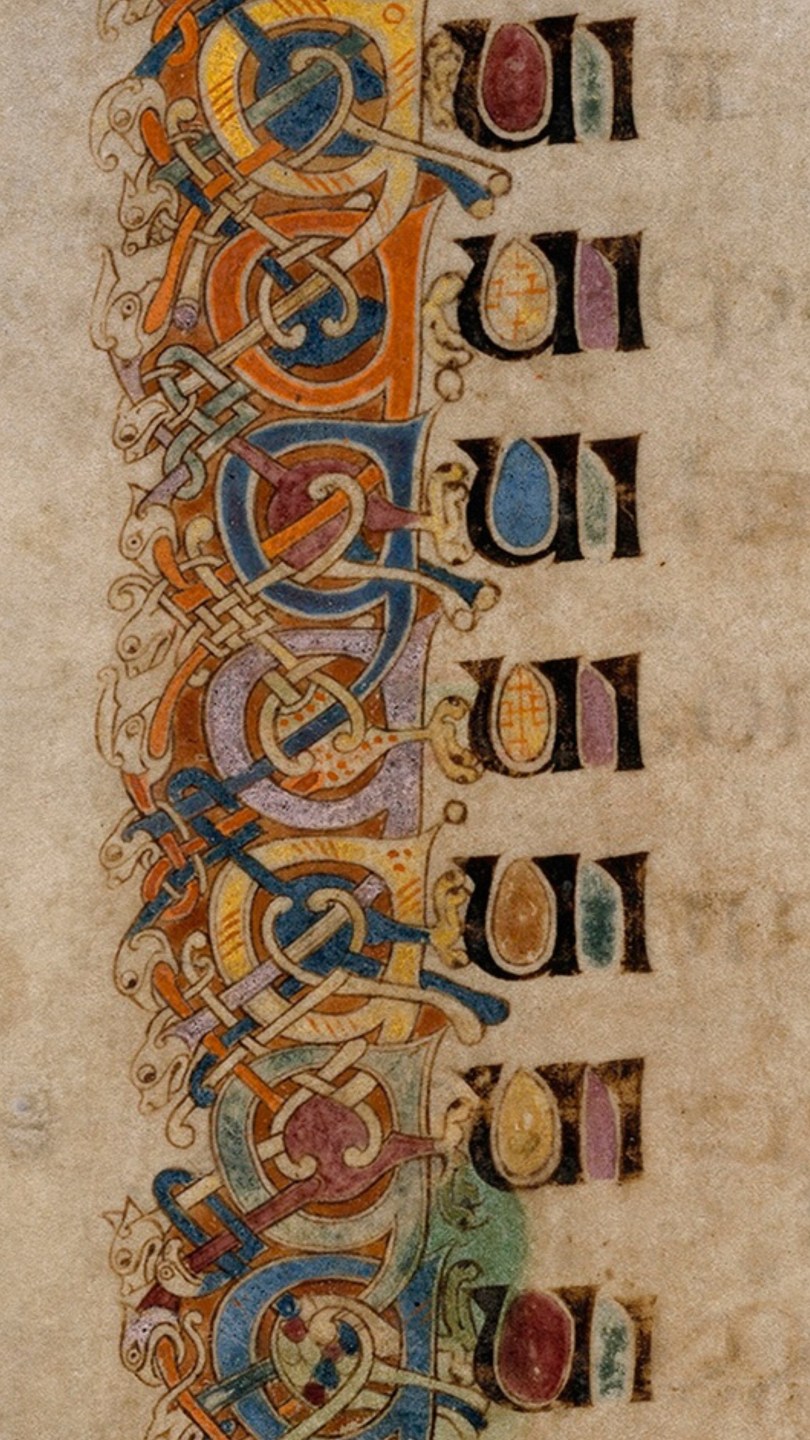 Qui
Qui
Qui
Qui
Qui
Qui
Qui